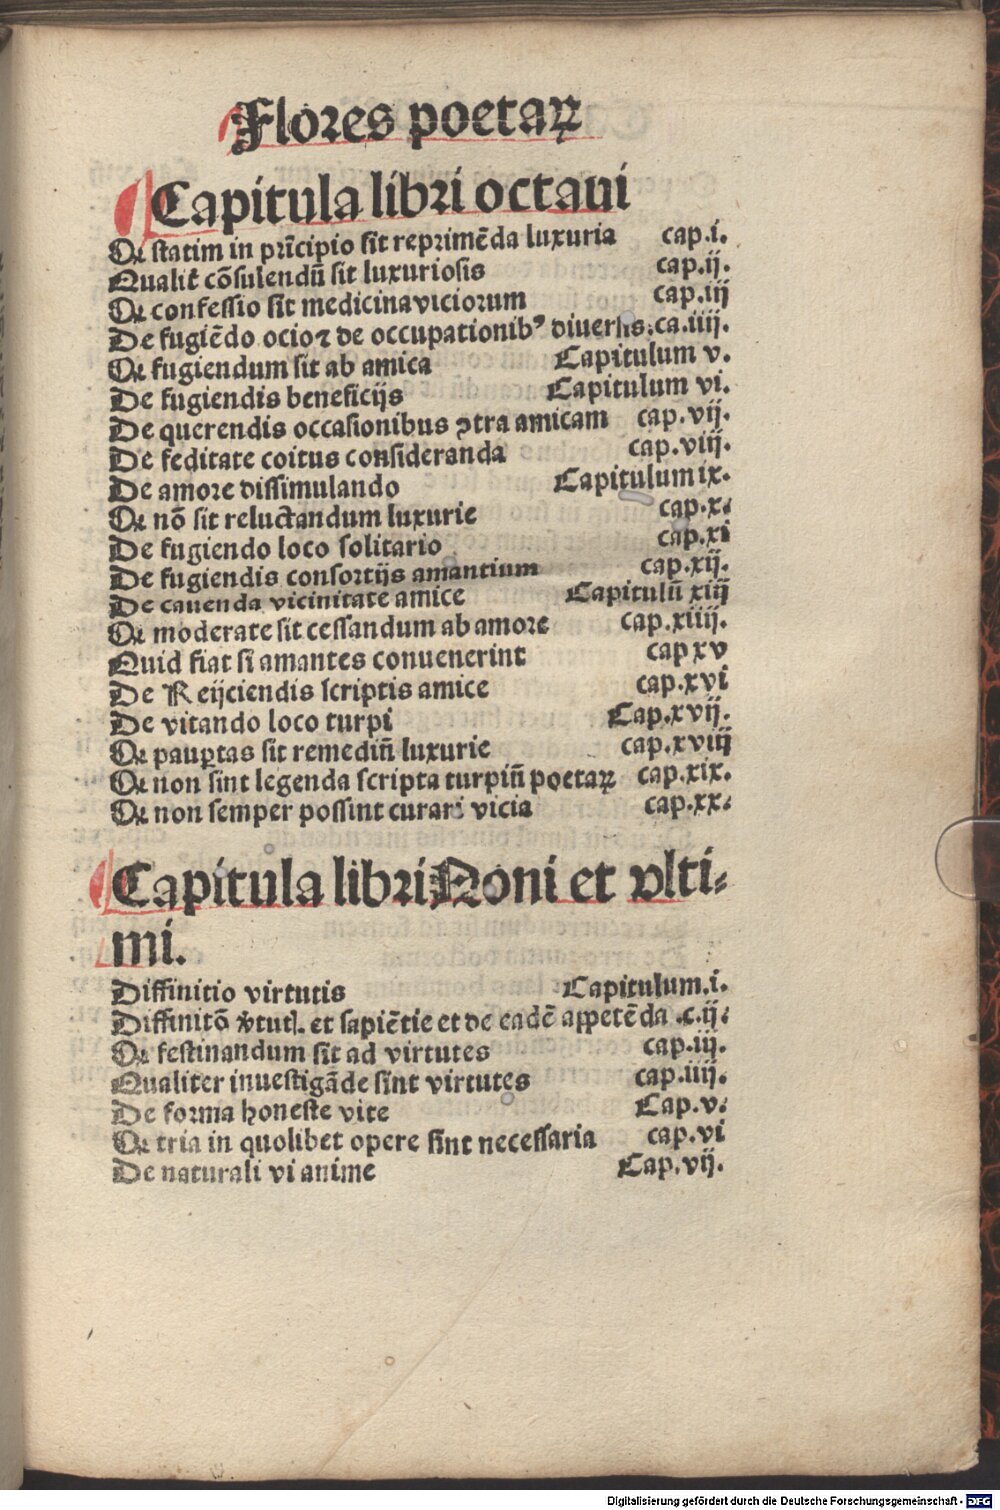 Flores poetaꝝ
Capitula libri octaui
Qꝛ statim in prīcipio sit reprimēda luxuria cap.i.
Qualiť cōsulendū sit luxuriosis cap.ij.
Qꝛ confessio sit medicina viciorum cap.iij
De fugiēdo ocio ⁊ de occupationibꝰ diuersis.ca.iiij.
Qꝛ fugiendum sit ab amica Capitulum v.
De fugiendis beneficijs Capitulum vi.
De querendis occasionibus ꝯtra amicam cap.vij.
De feditate coitus consideranda cap.viij.
De amore dissimulando Capitulum ix.
Qꝛ nō sit reluctandum luxurie cap.x.
De fugiendo loco solitario cap.xi
De fugiendis consortijs amantium cap.xij.
De cauenda vicinitate amice Capitulū xiij
Qꝛ moderate sit cessandum ab amore cap.xiiij.
Quid fiat si amantes conuenerint cap xv
De Reijciendis scriptis amice cap.xvi
De vitando loco turpi Cap.xvij.
Qꝛ pauꝑtas sit remediū luxurie cap.xviij
Qꝛ non sint legenda scripta turpiū poetaꝝ cap.xix.
Qꝛ non semper possint curari vicia cap.xx.
Capitula libri Noni et vlti⸗
mi.
Diffinitio virtutis Capitulum.i.
Diffinitō v̓tutꝭ. et sapiētie et de eadē aꝓpetēda .c.ij.
Qꝛ festinandum sit ad virtutes cap.iij.
Qualiter inuestigāde sint virtutes cap.iiij.
De forma honeste vite Cap.v.
Qꝛ tria in quolibet opere sint necessaria cap.vi
De naturali vi anime Cap.vij.
Digitalisierung gefördert durch die Deutsche Forschungsgemeinschaft - DFG